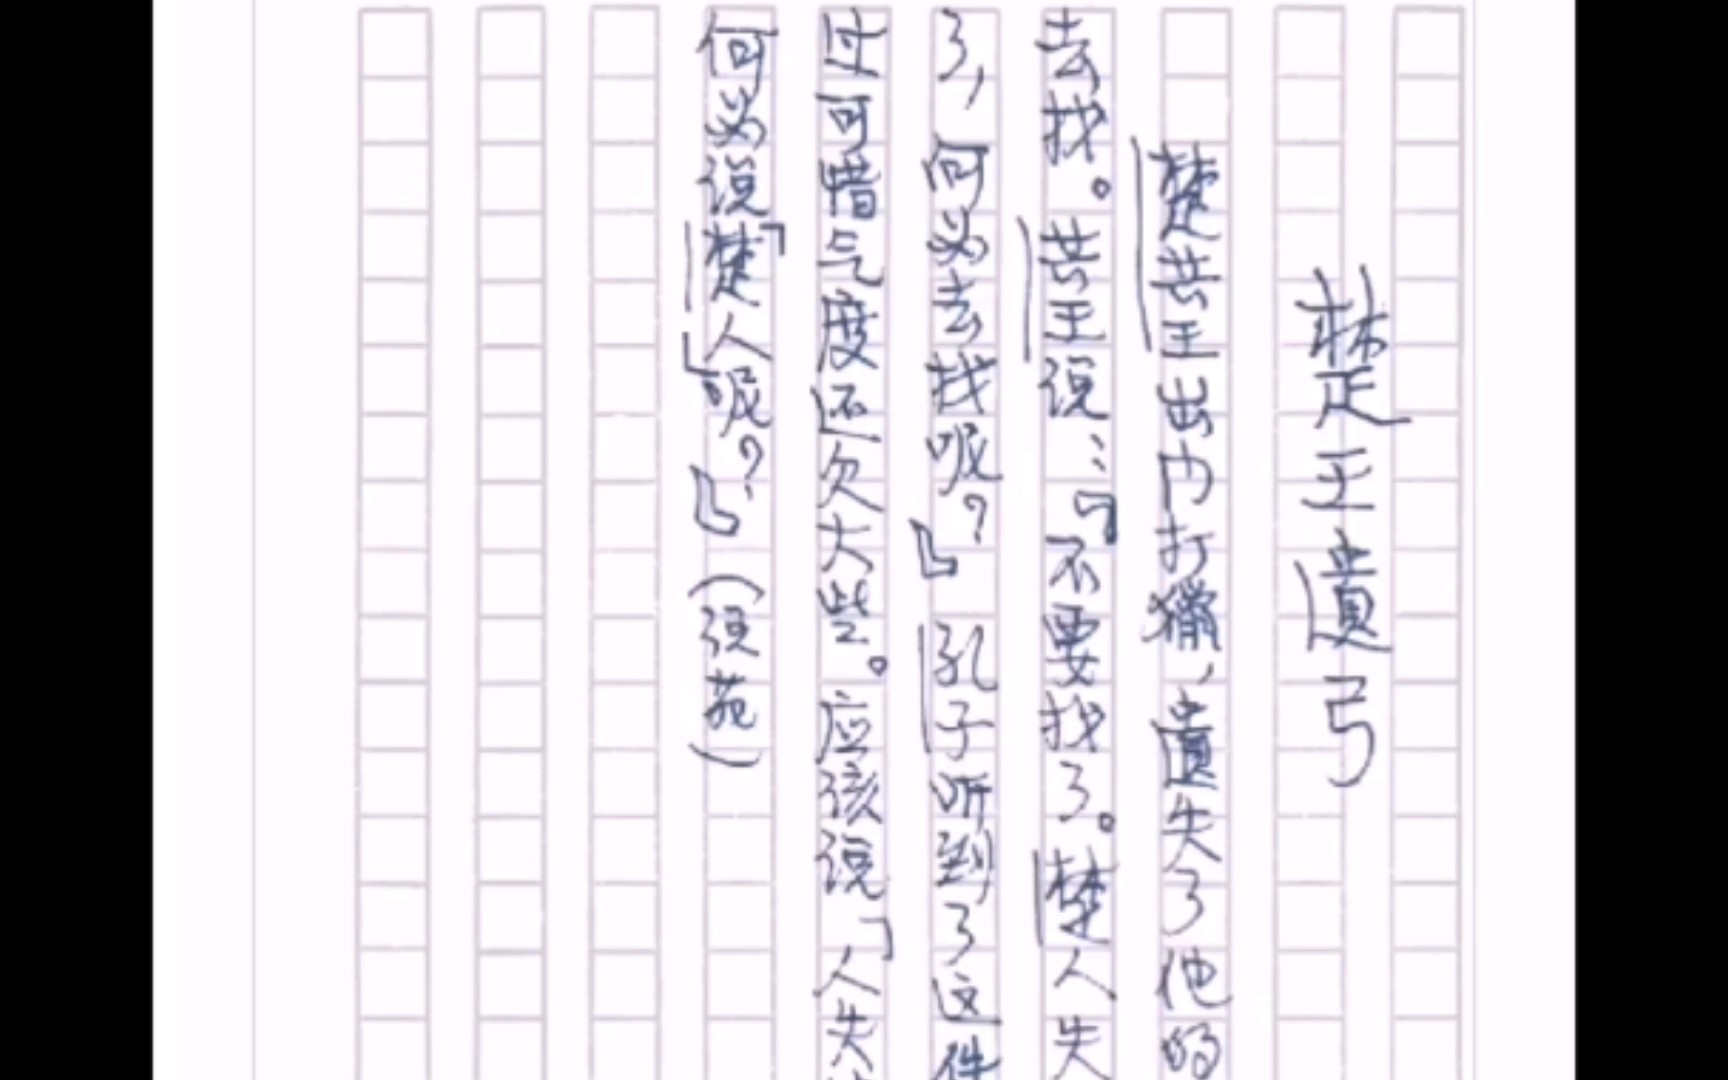 楚王遗弓
楚共王出门打猎，遗失了他的
去找。共王说：『不要找了。楚人失
了，何必去找呢？』孔子听到了这件
过可惜气度还欠大些。应该说「人失
何必说「楚人」呢？』（说苑）